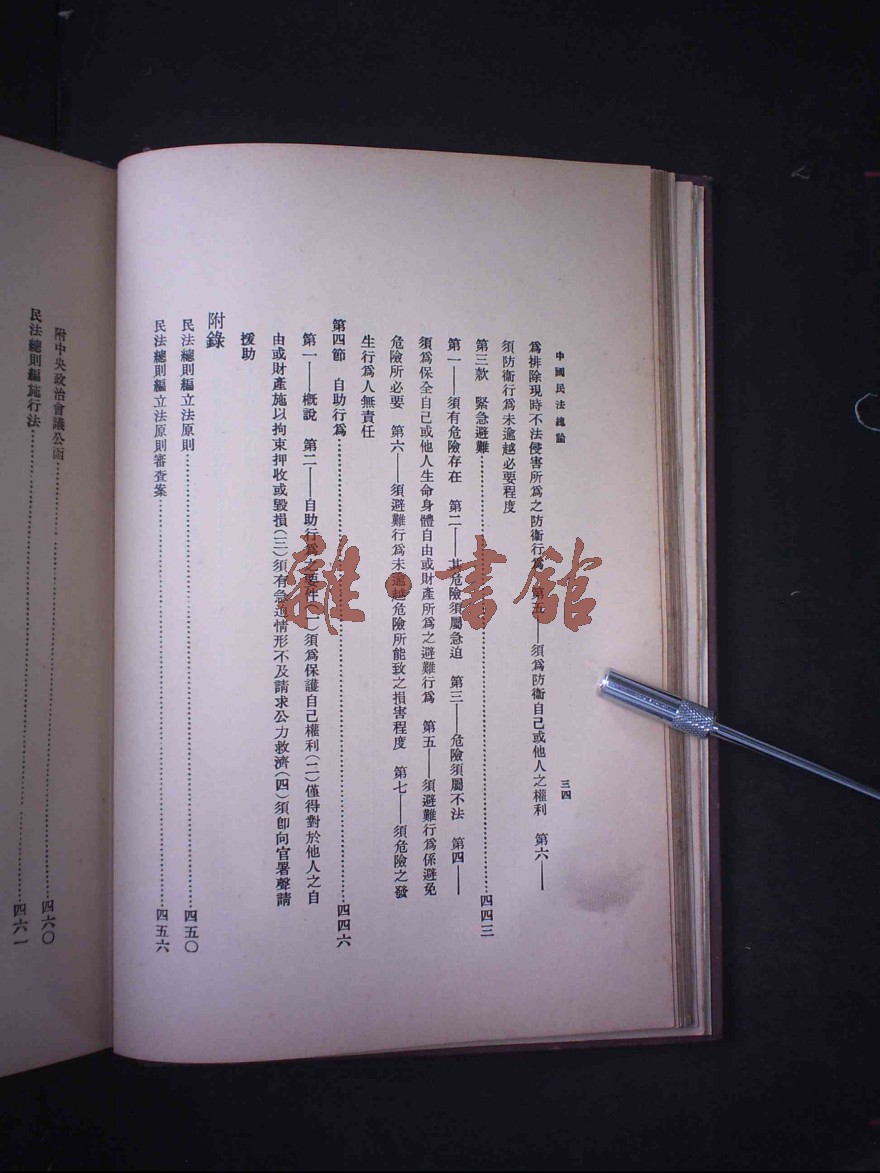 中國民法總論
三四
爲排除現時不法侵害所爲之防衞行爲　第五——須爲防衞自己或他人之權利　第六——
須防衞行爲未逾越必要程度
第三款　緊急避難…………四四三
第一——須有危險存在　第二——其危險須屬急迫　第三——危險須屬不法　第四——
須爲保全自己或他人生命身體自由或財產所爲之避難行爲　第五——須避難行爲係避免
危險所必要　第六——須避難行爲未逾越危險所能致之損害程度　第七——須危險之發
生行爲人無責任
第四節　自助行爲…………四四六
第一——概說　第二——自助行爲之要件(一)須爲保護自己權利(二)僅得對於他人之自
由或財產施以拘束押收或毀損(三)須有急迫情形不及請求公力救濟(四)須卽向官署聲請
援助
附錄
民法總則編立法原則…………四五〇
民法總則編立法原則審查案…………四五六
附中央政治會議公函…………四六〇
民法總則編施行法…………四六一
雜·書館